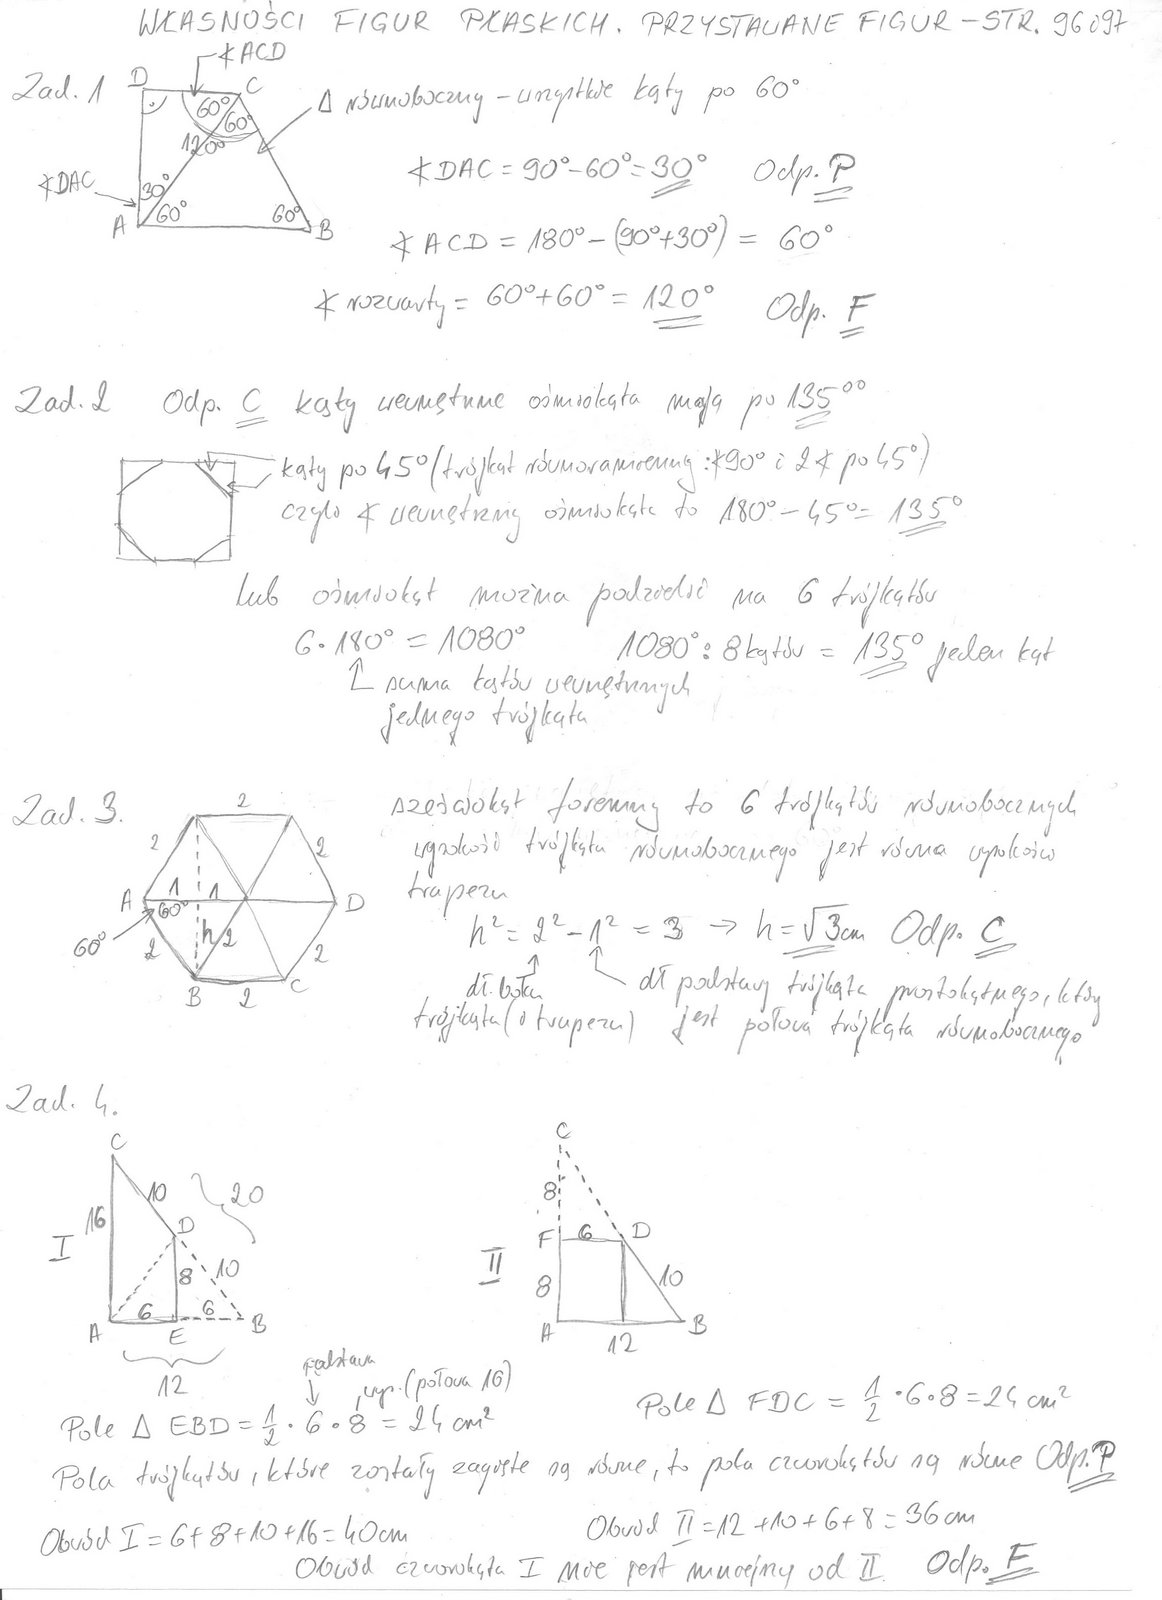 WŁASNOŚCI FIGUR PŁASKICH. PRZYSTAWANIE FIGUR – STR. 96 i 97
Zad. 1
∢ACD
D
C
60°
60°
120°
∢DAC
30°
60°
60°
A
B
Δ równoboczny – wszystkie kąty po 60°
∢DAC = 90° – 60° = 30° Odp. P
∢ACD = 180° – (90° + 30°) = 60°
∢ rozwarty = 60° + 60° = 120° Odp. F
Zad. 2 Odp. C kąty wewnętrzne ośmiokąta mają po 135°
kąty po 45° (trójkąt równoramienny: ∢90° i 2∢ po 45°)
czyli ∢ wewnętrzny ośmiokąta to 180° – 45° = 135°
lub ośmiokąt można podzielić na 6 trójkątów
6 · 180° = 1080° 1080° : 8 kątów = 135° jeden kąt
suma kątów wewnętrznych
jednego trójkąta
Zad. 3.
2
2
2
A
1
1
D
60°
60°
h
2
2
2
B
2
C
sześciokąt foremny to 6 trójkątów równobocznych
wysokość trójkąta równobocznego jest równa wysokości
trapezu
h² = 2² – 1² = 3 → h = √3 cm Odp. C
dł. boku
trójkąta (i trapezu)
dł podstawy trójkąta prostokątnego, który
jest połową trójkąta równobocznego
Zad. 4.
C
10
20
16
I
D
8
10
6
6
A
E
B
12
C
8
F
6
D
II
8
10
A
B
12
podstawa
wys. (połowa 16)
Pole Δ EBD = 1/2 · 6 · 8 = 24 cm²
Pole Δ FDC = 1/2 · 6 · 8 = 24 cm²
Pola trójkątów, które zostały zagięte są równe, to pola czworokątów są równe Odp. P
Obwód I = 6 + 8 + 10 + 16 = 40 cm
Obwód II = 12 + 10 + 6 + 8 = 36 cm
Obwód czworokąta I nie jest mniejszy od II Odp. F